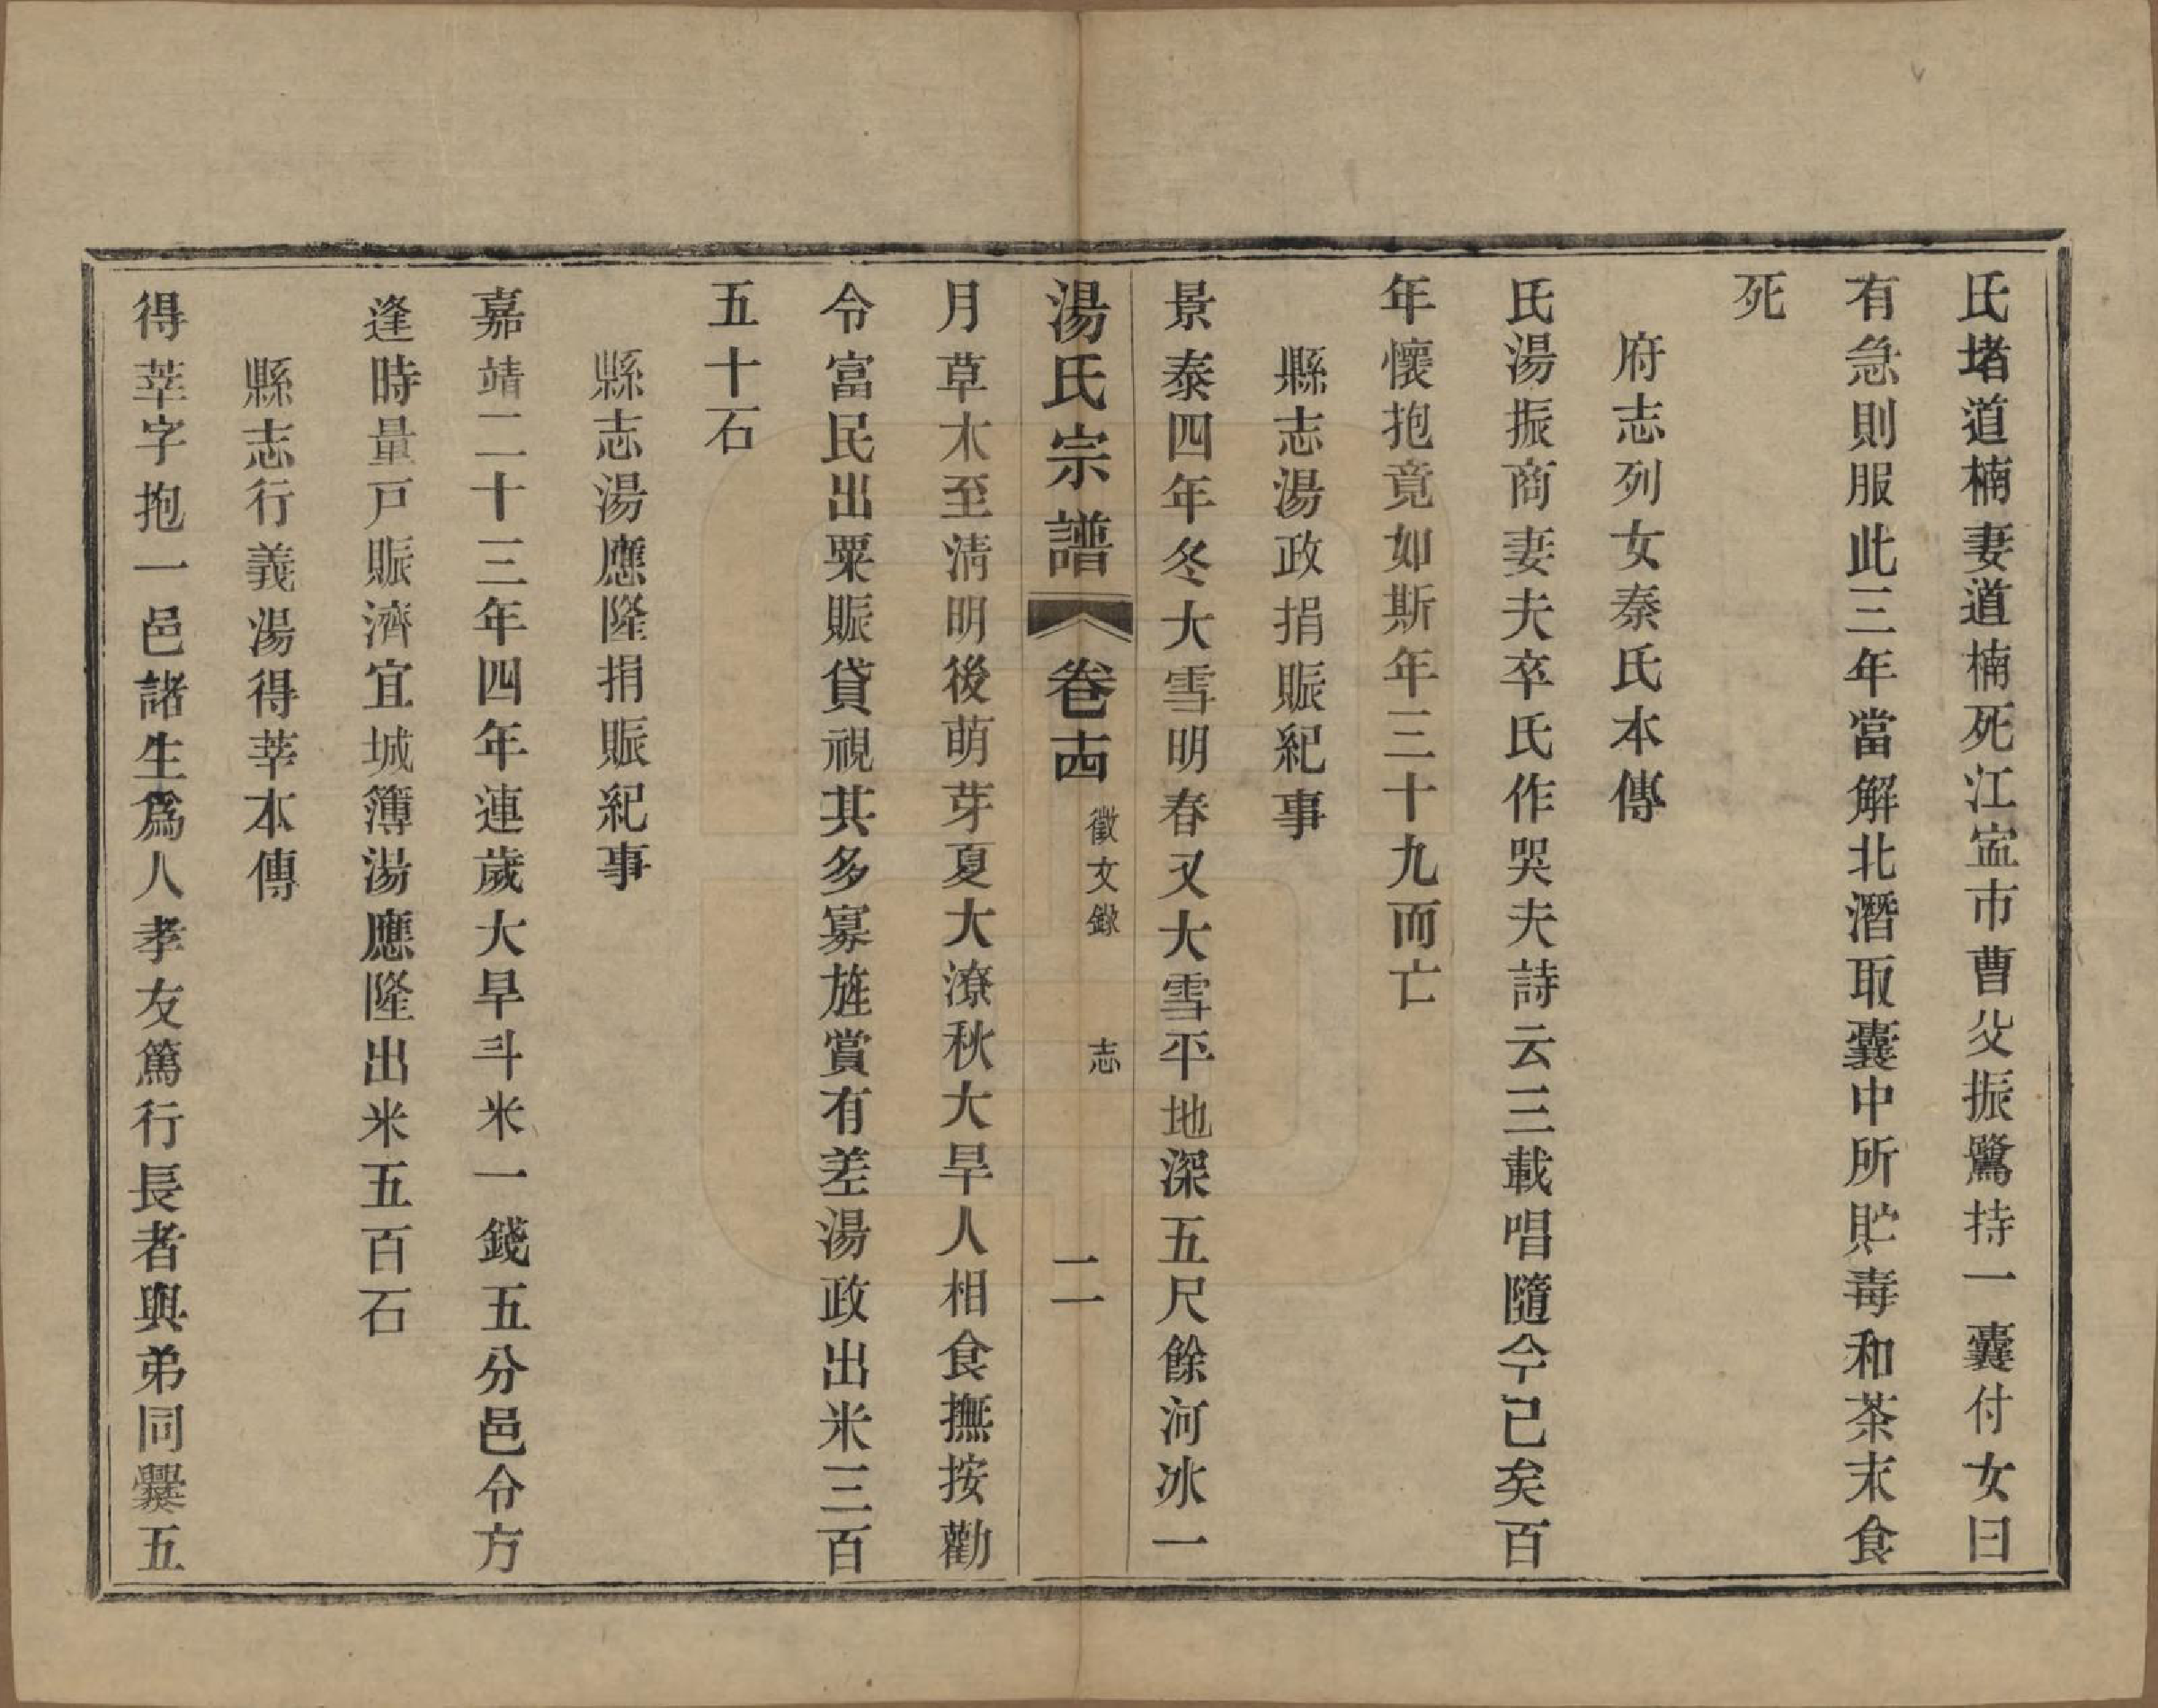 氏堵道楠妻道楠死江寍市曹父振鷺持一囊付女曰
有急則服此三年當解北潛取囊中所貯毒和茶末食
死
府志列女秦氏本傳
氏湯振商妻夫卒氏作哭夫詩云三載唱隨今已矣百
年懷抱竟如斯年三十九而亡
縣志湯政捐賑紀事
景泰四年冬大雪明春又大雪平地深五尺餘河冰一
湯氏宗譜 卷十四 徵文錄 志 二
月草木至清明後萌芽夏大潦秋大旱人相食撫按勸
令富民出粟賑貸視其多寡旌賞有差湯政出米三百
五十石
縣志湯應隆捐賑紀事
嘉靖二十三年四年連歲大旱斗米一錢五分邑令方
逢時量戸賑濟宜城簿湯應隆出米五百石
縣志行義湯得莘本傳
得莘字抱一邑諸生爲人孝友篤行長者與弟同爨五